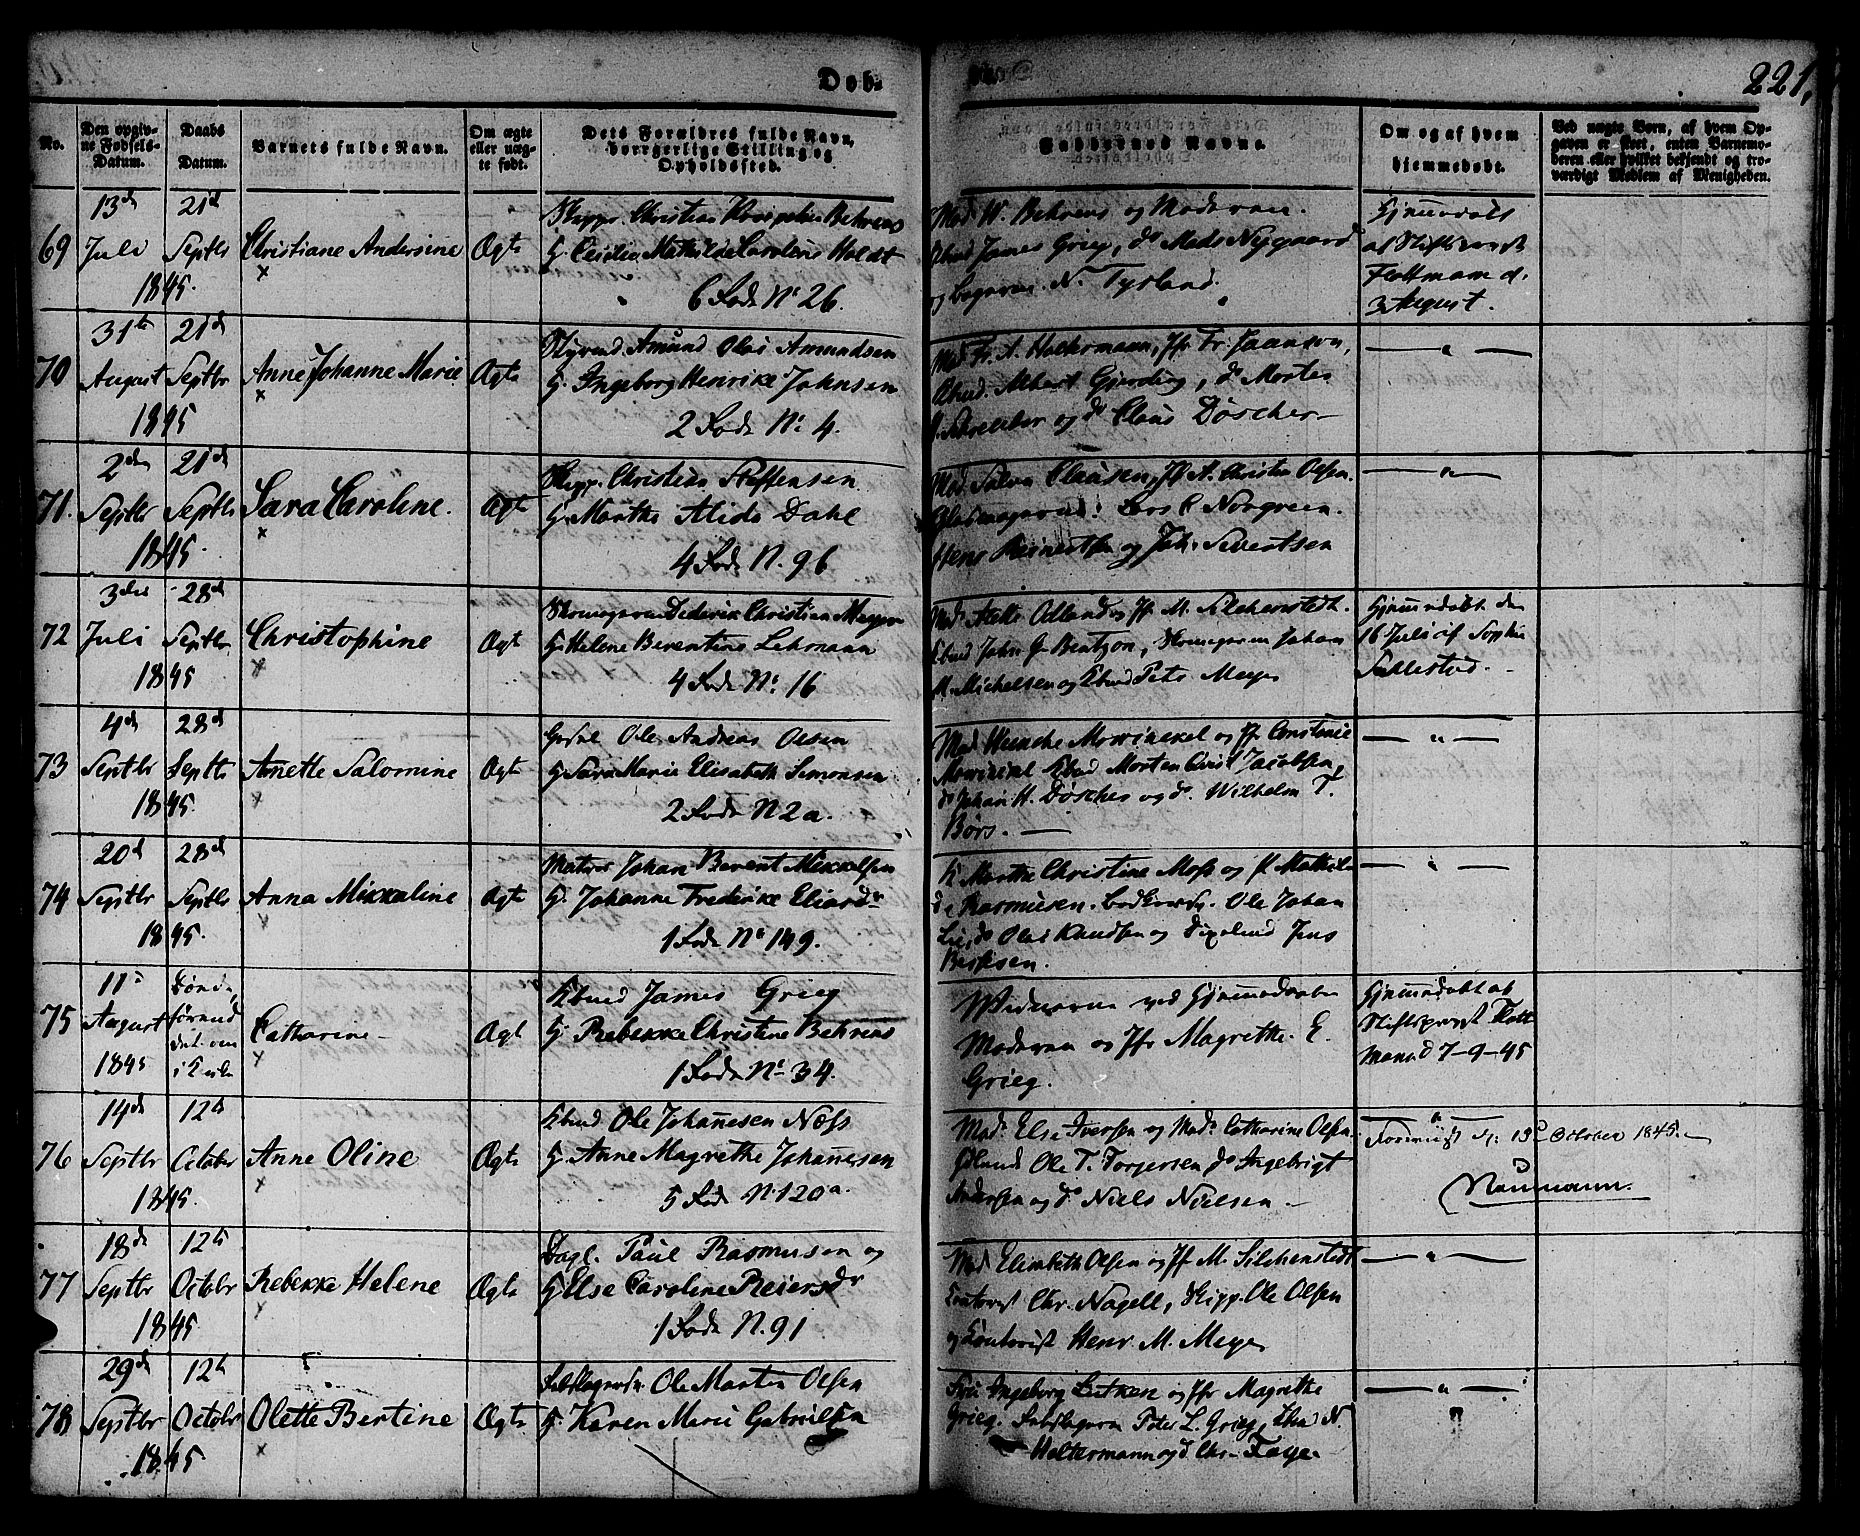 Døb-
221.
No.
Den opgiv-
ne Fødsels-
Datum.
Daabs
Datum.
Barnets fulde Navn.
Om ægte
eller uæg-
te født.
Dets Forældres fulde Navn,
borgerlige Stilling og
Opholdssted.
Faddernes Navne.
Om og af hvem
hjemmedøbt.
Ved uægte Børn, af hvem Op-
gaven er skeet, enten Barnemo-
deren eller hvilket bekjendt og tro-
værdigt Medlem af Menigheden.
69
13de
Juli
1845.
21de
Septbr
Christiane Andersine
Ægte
Skippr. Christian Behrens
H. Cecilia Mathilde Caroline Holdt
6 Rode No 26.
Mad. W. Behrens og Moderen.
Kbmd James Grieg, do Mads Nygaard
og N. Tysland.
Hjemmedøbt
af Stiftsprovst
Flottmann d.
3 August.
70
31te
August
1845
21de
Septbr
Anne Johanne Marie
Ægte
Styrmd Amund Olai Amundsen
H. Ingeborg Henrike Johnsen
2 Rode No 4.
Mad. Fr. A. Holtermann, Jfr Fr. Jaanson,
Kbmd. Albert Gjerding, do Morten
og do Claus Döscher
— " —
71.
2den
Septbr
1845.
21de
Septbr
Sara Caroline.
Ægte
Skipp. Christian Steffensen
H. Marthe Alida Dahl
4 Rode N. 96
Mad. Clausen, Jfr A. Christin Olsen.
Lars C Norgreen.
Hens og Joh. Sivertsen
— " —
72
3die
Juli
1845
28de
Septbr
Christophine
Ægte
Skomagerm Diderik Christian Meyer
H Helene Berentine Lehmann
4 Rode No 16
Mad. og Jfr M. Silchenstedt.
Kbmd John G Bentzon, Skomagerm Johan
M. Michelsen og Kbmd Peter Meyer
Hjemmedøbt den
16 Juli af Sophie
73
4de
Septbr
1845.
28de
Septbr
Anette Salomine
Ægte
Ole Andreas Olsen
H Sara Marie Elisabeth Simonsen
2 Rode N 2a.
Mad Wenche Mowinckel og Jfr Constance
Mowinckel Kbmd Morten Christ Jacobsen,
do Johan H. Döscher og do. Wilhelm T.
Børs. —
— " —
74
20de
Septbr
1845.
28de
Septbr
Anna Mikkaline
Ægte
Matros Johan Berent Mikkelsen
H. Johanne Frederike Eliasdr
1 Rode No 149.
K Marthe Christine Moss og P Mathil-
de Rasmusen. Ole Johan
Lie, do Olai Knudsen og Jens
— " —
75
11te
August
1845
Catharine —
Ægt
Kbmd James Grieg
H. Rebekke Christine Behrens
1 Rode No 34.
Vidnerne ved Hjemmedaaben
Moderen og Jfr Magrethe E.
Grieg.
Hjemmedøbt af
Stiftsprovst Flott
mann d 7-9-45
76
14de
Septbr
1845.
12te
October
Anne Oline
Ægte
Kbmd Ole Johannesen Næss
H. Anne Magrethe Johannesen
5 Rode No 120a.
Mad. Else Iversen og Mad. Catharine Olsen.
Ole T. Torjersen do Ingebrigt
Andersen og do Niels Nielsen —
— " —
Forevist d. 13de October 1845.
Neumann.
77
18de
Septbr
1845
12te
Octobr
Rebekke Helene
Ægte
Dagl. Paul Rasmusen og
H Else Caroline Reiersdr
1 Rode N. 91
Mad Elisabeth Olsen og Jfr M. Silchenstedt
Kontorist Chr. Nagell, Skipp. Ole Olsen
og Kontorist Henr. M. Meyer
— " —
78
29de
Septbr
1845
12te
Octobr
Olette Bertine
Ægte
Ole Martin Olsen
H. Karen Marie Gabrielsen
Fru Ingeborg Lutken og Jfr Magrethe
Grieg. Peter L. Grieg, Kbmd N.
Holtermann og do Chr. Faye
— " —